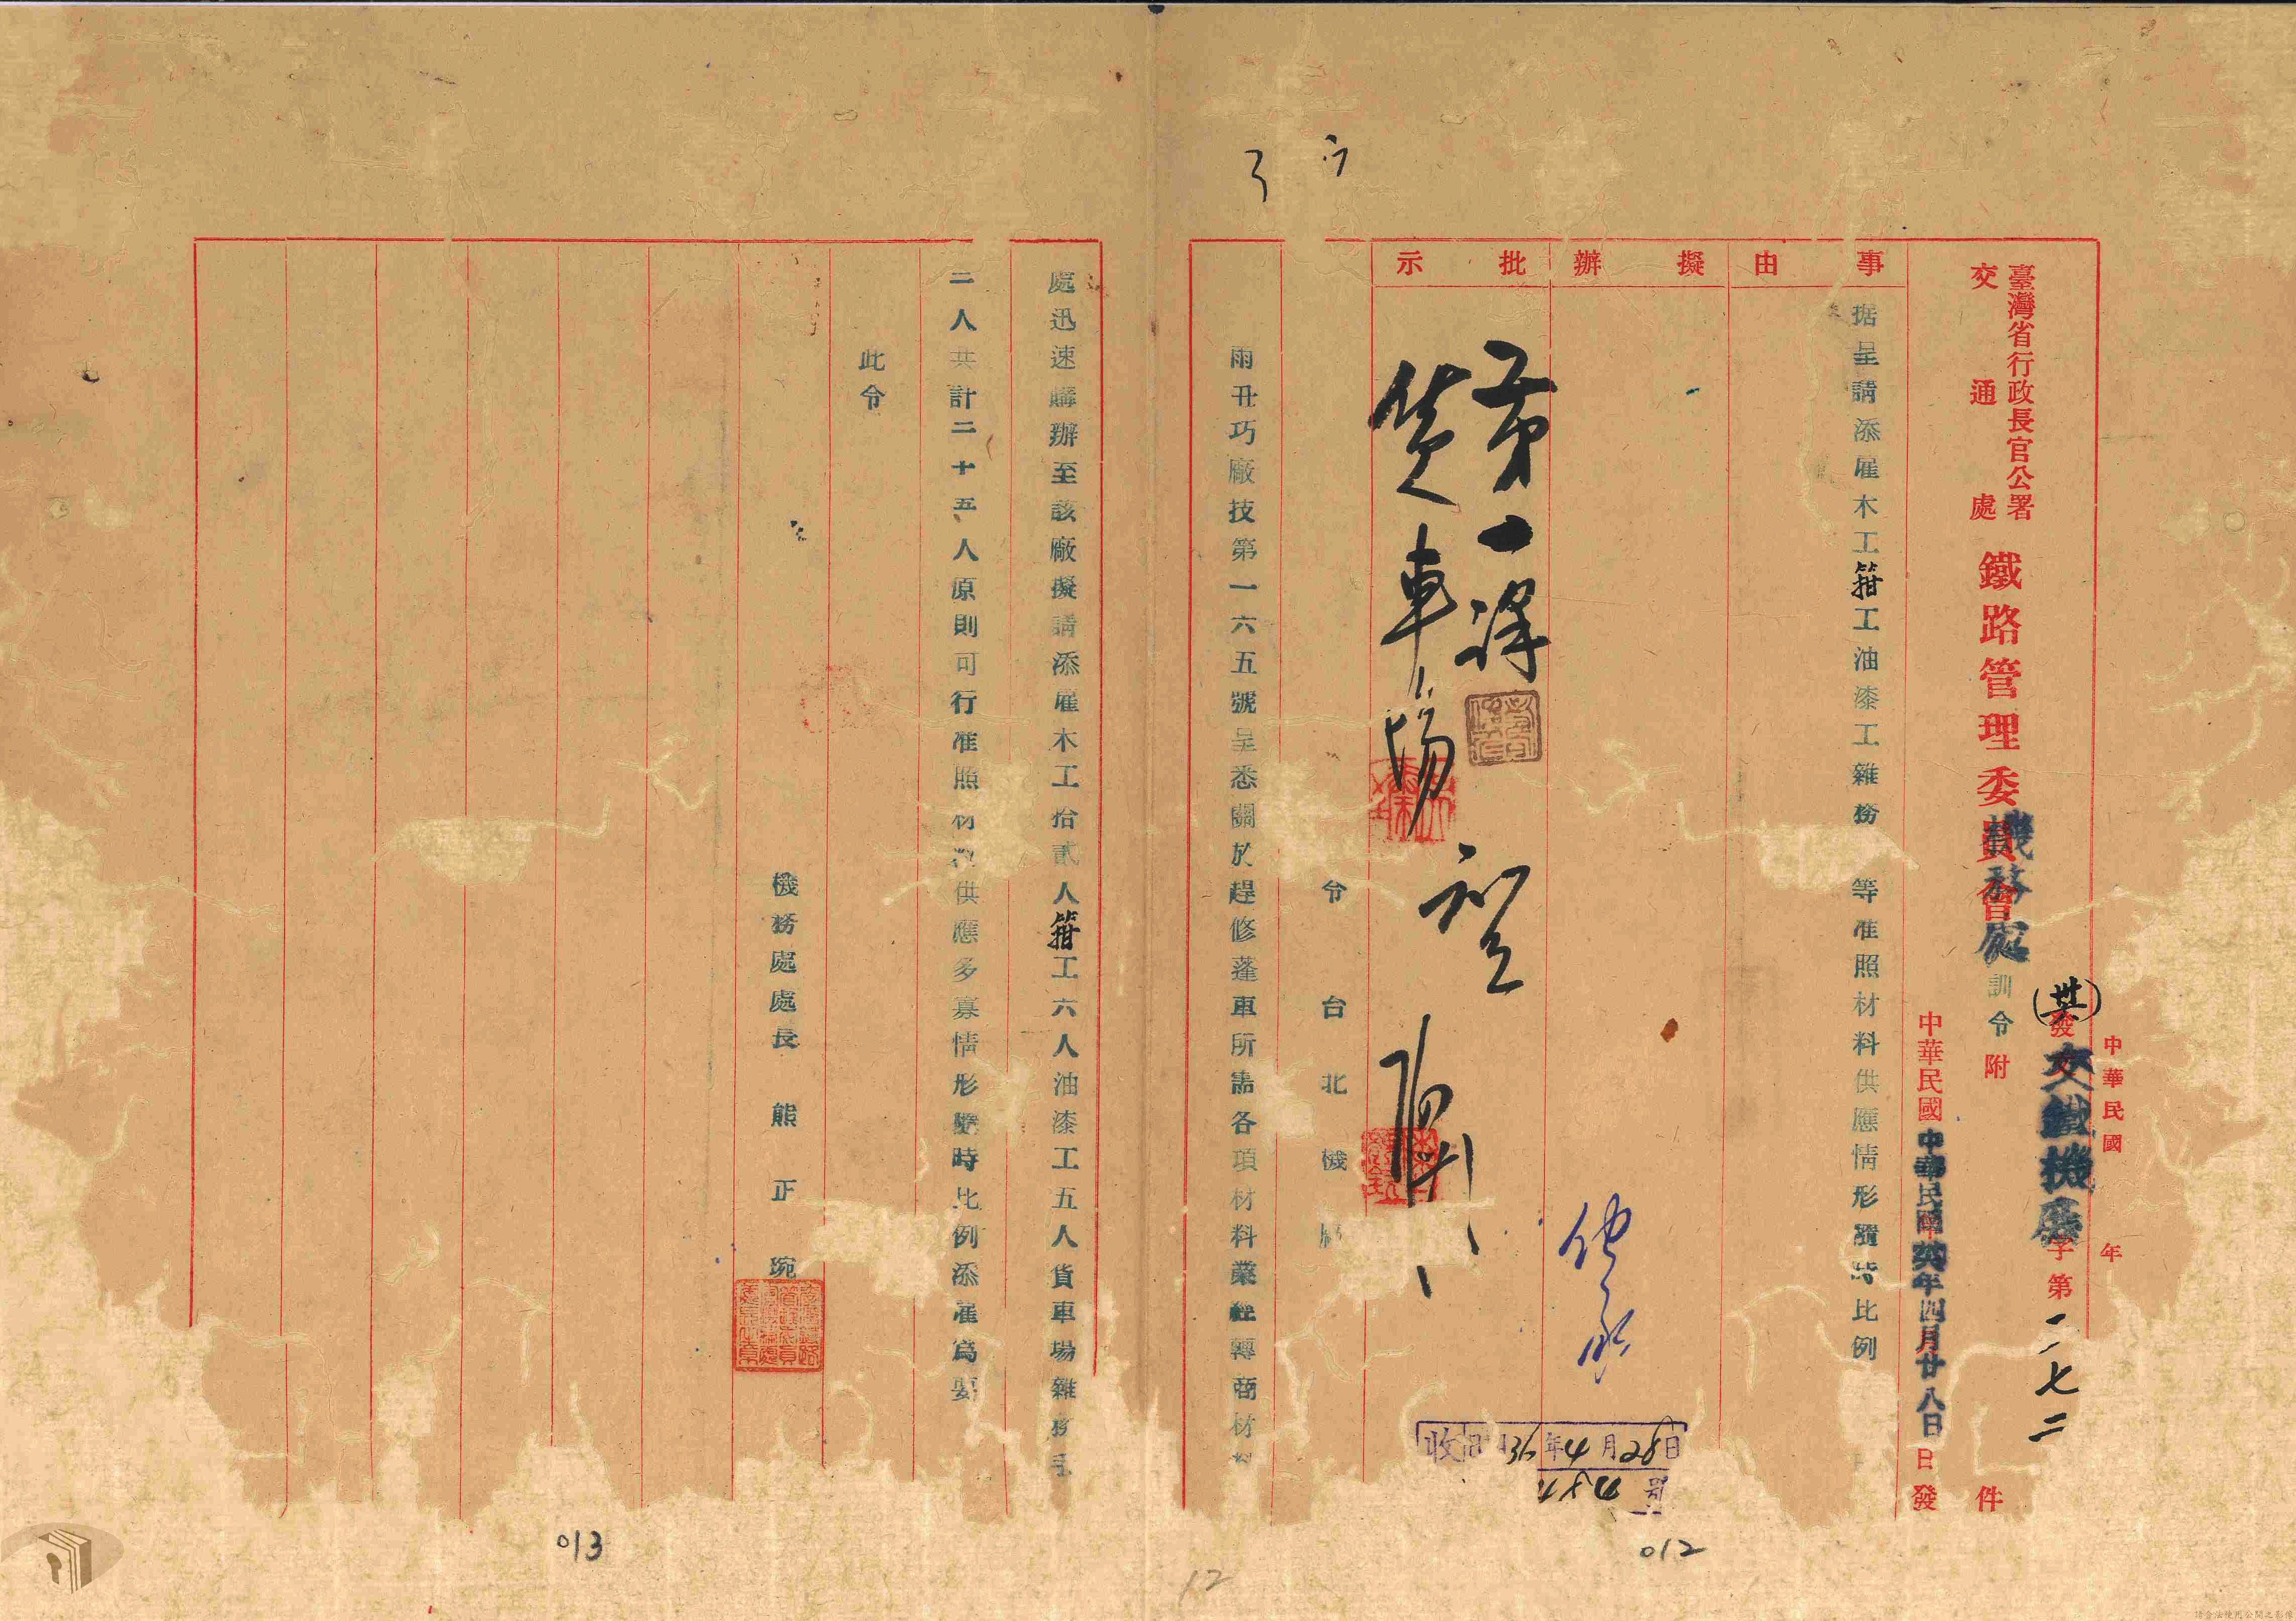 中華民國 年
(卅六)發文交鐵機廠字第一二七二
臺灣省行政長官公署
交通處
鐵路管理委員會機務處訓令 附 件
中華民國中華民國卅六年四月廿八日 日發
事由
据呈請添雇木工箝工油漆工雜務 等准照材料供應情形隨時比例
擬辦
批示
第一課
貨車場
令 台 北 機
雨丑巧廠技第一六五號呈悉關於趕修蓬車所需各項材料業經轉商材
處迅速購辦至該廠擬請添雇木工拾貳人箝工六人油漆工五人貨車場雜務手
二人共計二十五人原則可行准照材料供應多寡情形隨時比例添雇為要
此令
機務處處長 熊正琬
收 36年4月28日
012
013
12